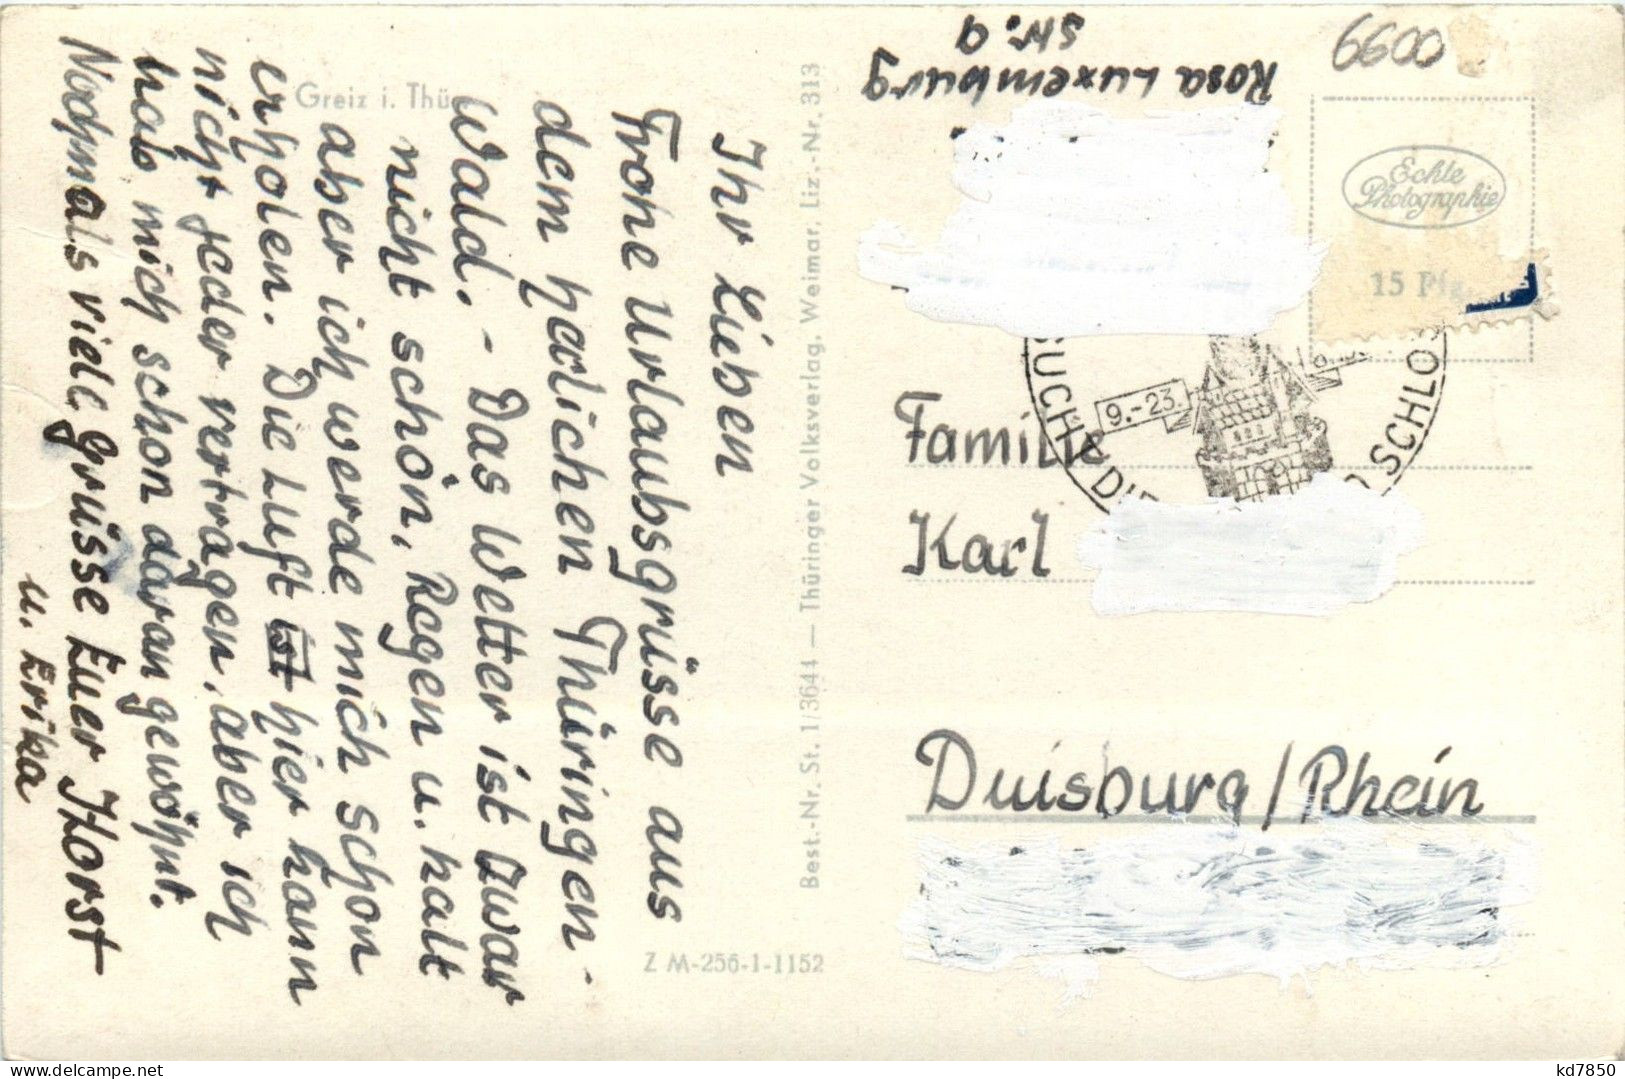 Greiz i. Thür
Ihr Lieben
Frohe Urlaubsgrüsse aus
dem herlichen Thüringen-
Wald. - Das Wetter ist zwar
nicht schön, Regen u. kalt
aber ich werde mich schon
erholen. Die Luft ist hier kann
nicht jeder vertragen, aber ich
hab mich schon daran gewöhnt.
Nochmals viele Grüsse Euer Horst
u. Erika
Best.-Nr. St. 1/3644 — Thüringer Volksverlag, Weimar, Liz.-Nr. 313
Z M-256-1-1152
Rosa Luxemburg
Str. 9
6600
Echte
Photographie
15 Pfg.
SUCHT DIE
SCHLO
9.-23.
Familie
Karl
Duisburg/Rhein
kd7850